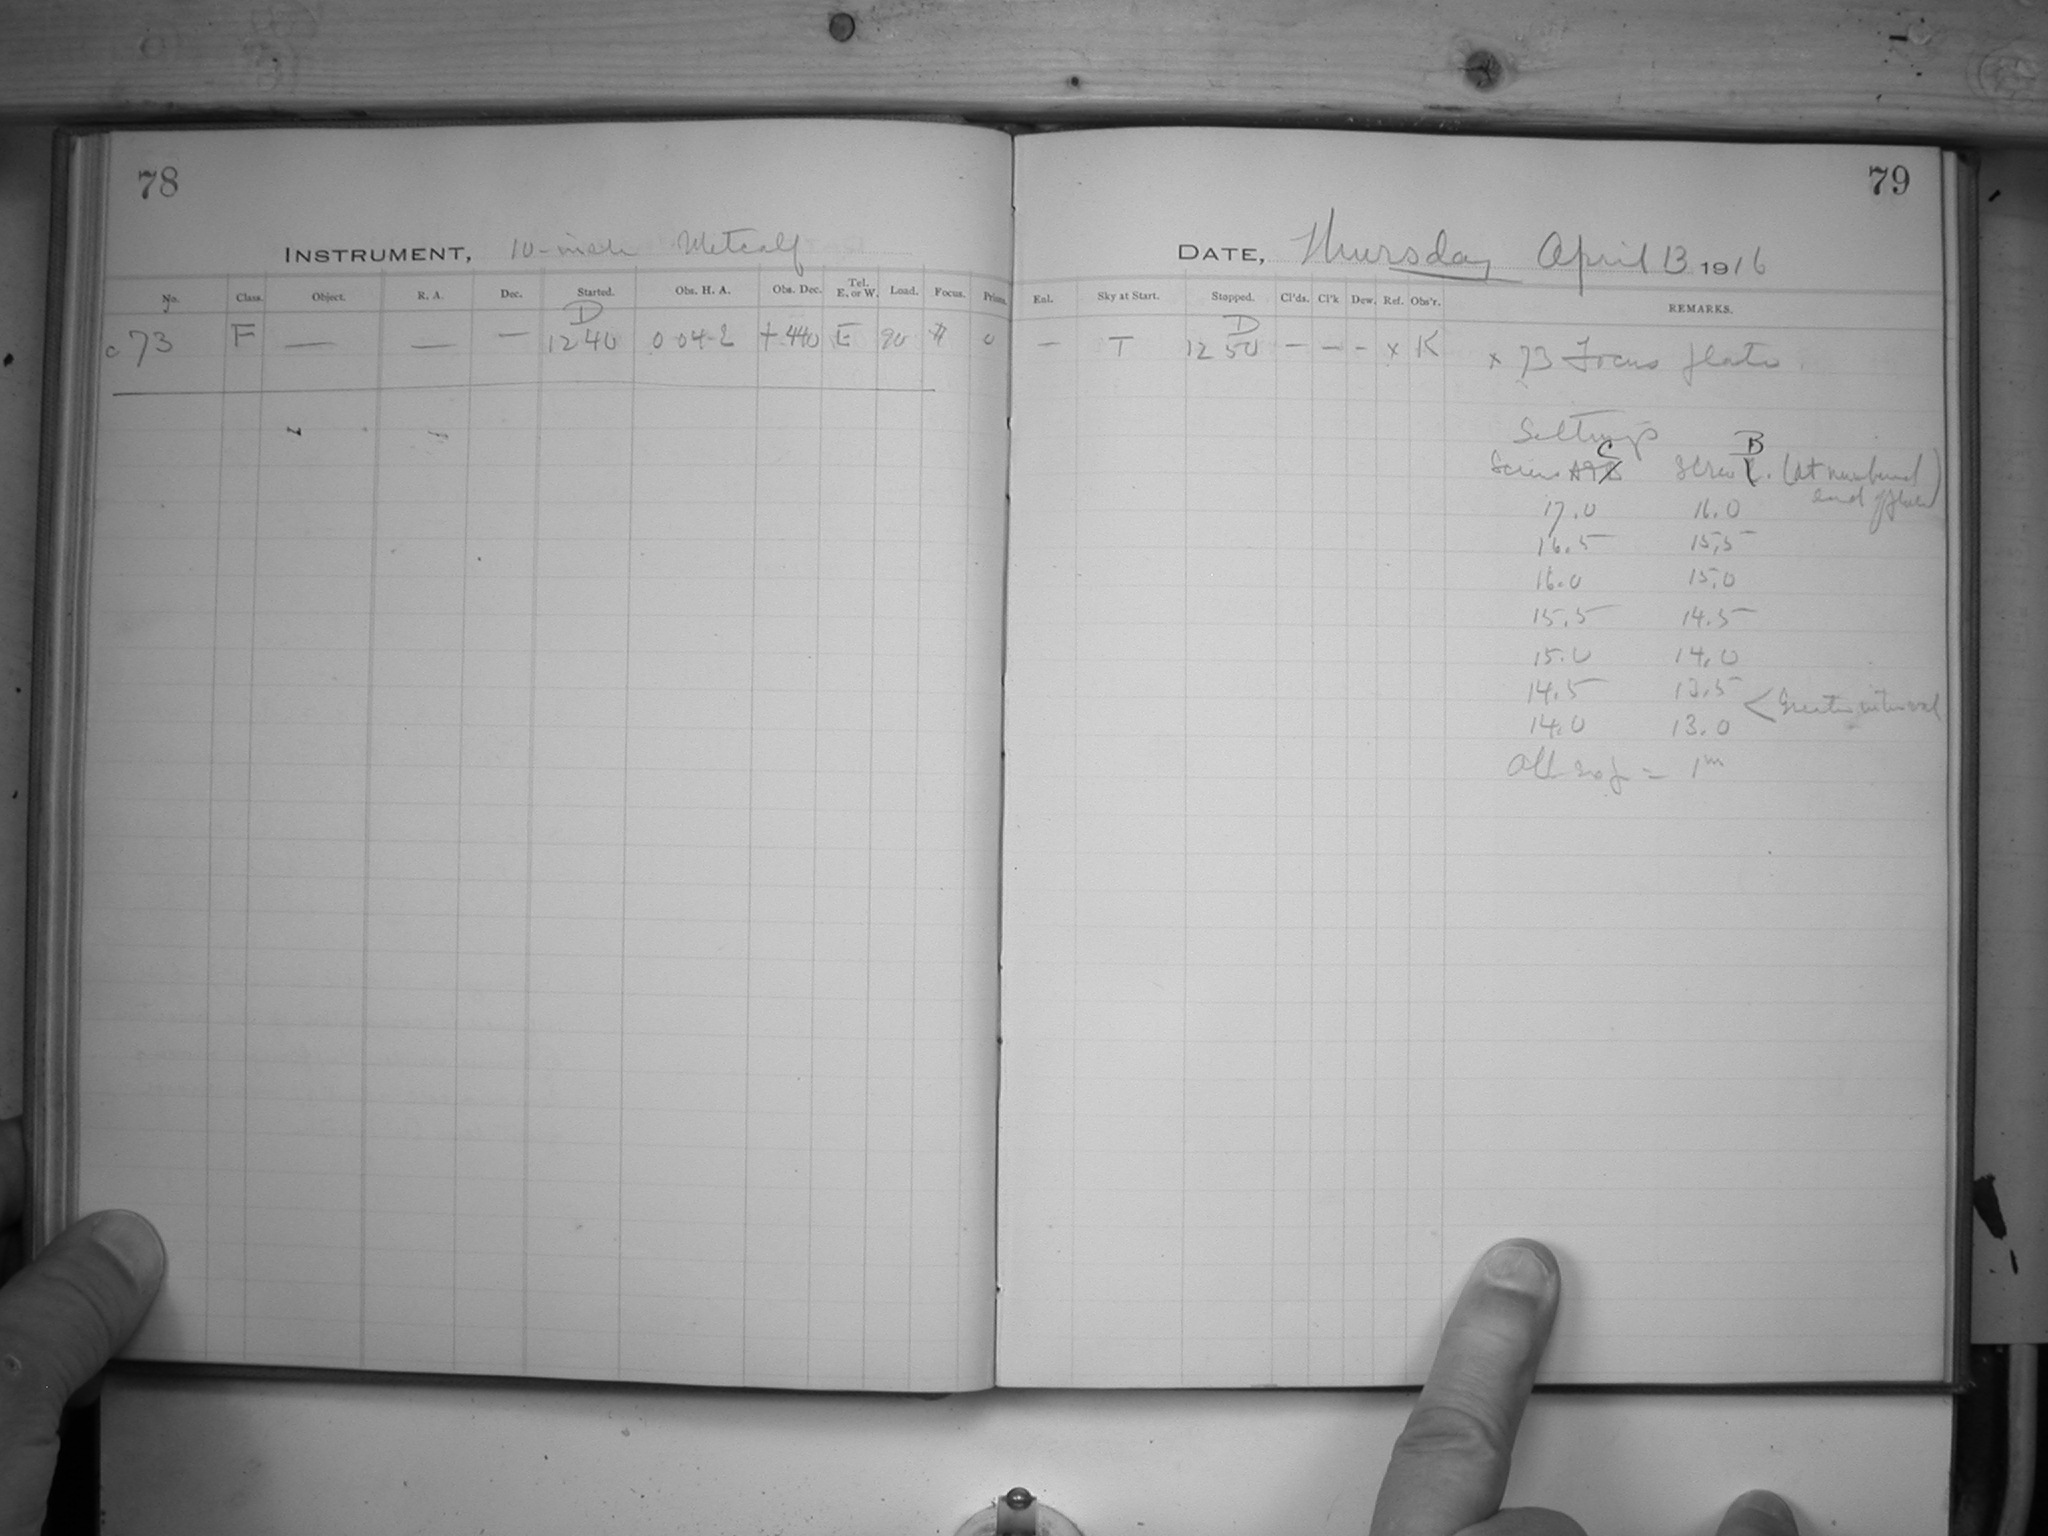 78
INSTRUMENT, 10-inch Metcalf
No. Class. Object. R. A. Dec. Started. Obs. H. A. Obs. Dec. Tel. E. or W. Load. Focus. Prism.
D
c 73 F — — — 12 40 0 04 + 440 E 90 0
79
DATE, Thursday April 13 1916
Eal. Sky at Start. Stopped. Cl'ds. Cl'k Dew. Ref. Obs'r. REMARKS.
D
— T 12 50 — — - x K x 73 Focus plate.
Settings
C B
Screws A & Screw (At numbered
end of plate)
17.0 16.0
16.5 15.5
16.0 15.0
15.5 14.5
15.0 14.0
14.5 13.5
< Greater interval
14.0 13.0
All exp = 1m